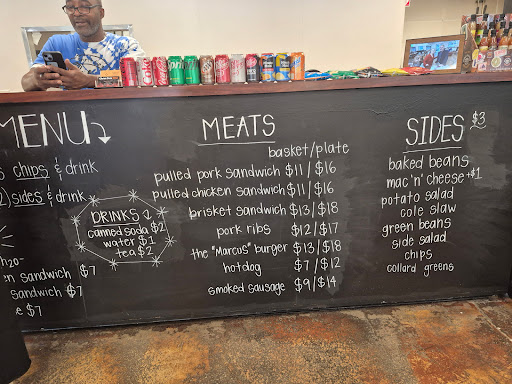 MENU
chips & drink
2) sides & drink
DRINKS
canned soda $2
water $1
tea $2
sandwich $7
sandwich $7
$7
MEATS
basket/plate
pulled pork sandwich $11/$16
pulled chicken sandwich $11/$16
brisket sandwich $13/$18
pork ribs $12/$17
the "Marcus" burger $13/$18
hotdog $7/$12
smoked sausage $9/$14
SIDES $3
baked beans
mac 'n' cheese +$1
potato salad
cole slaw
green beans
side salad
chips
collard greens